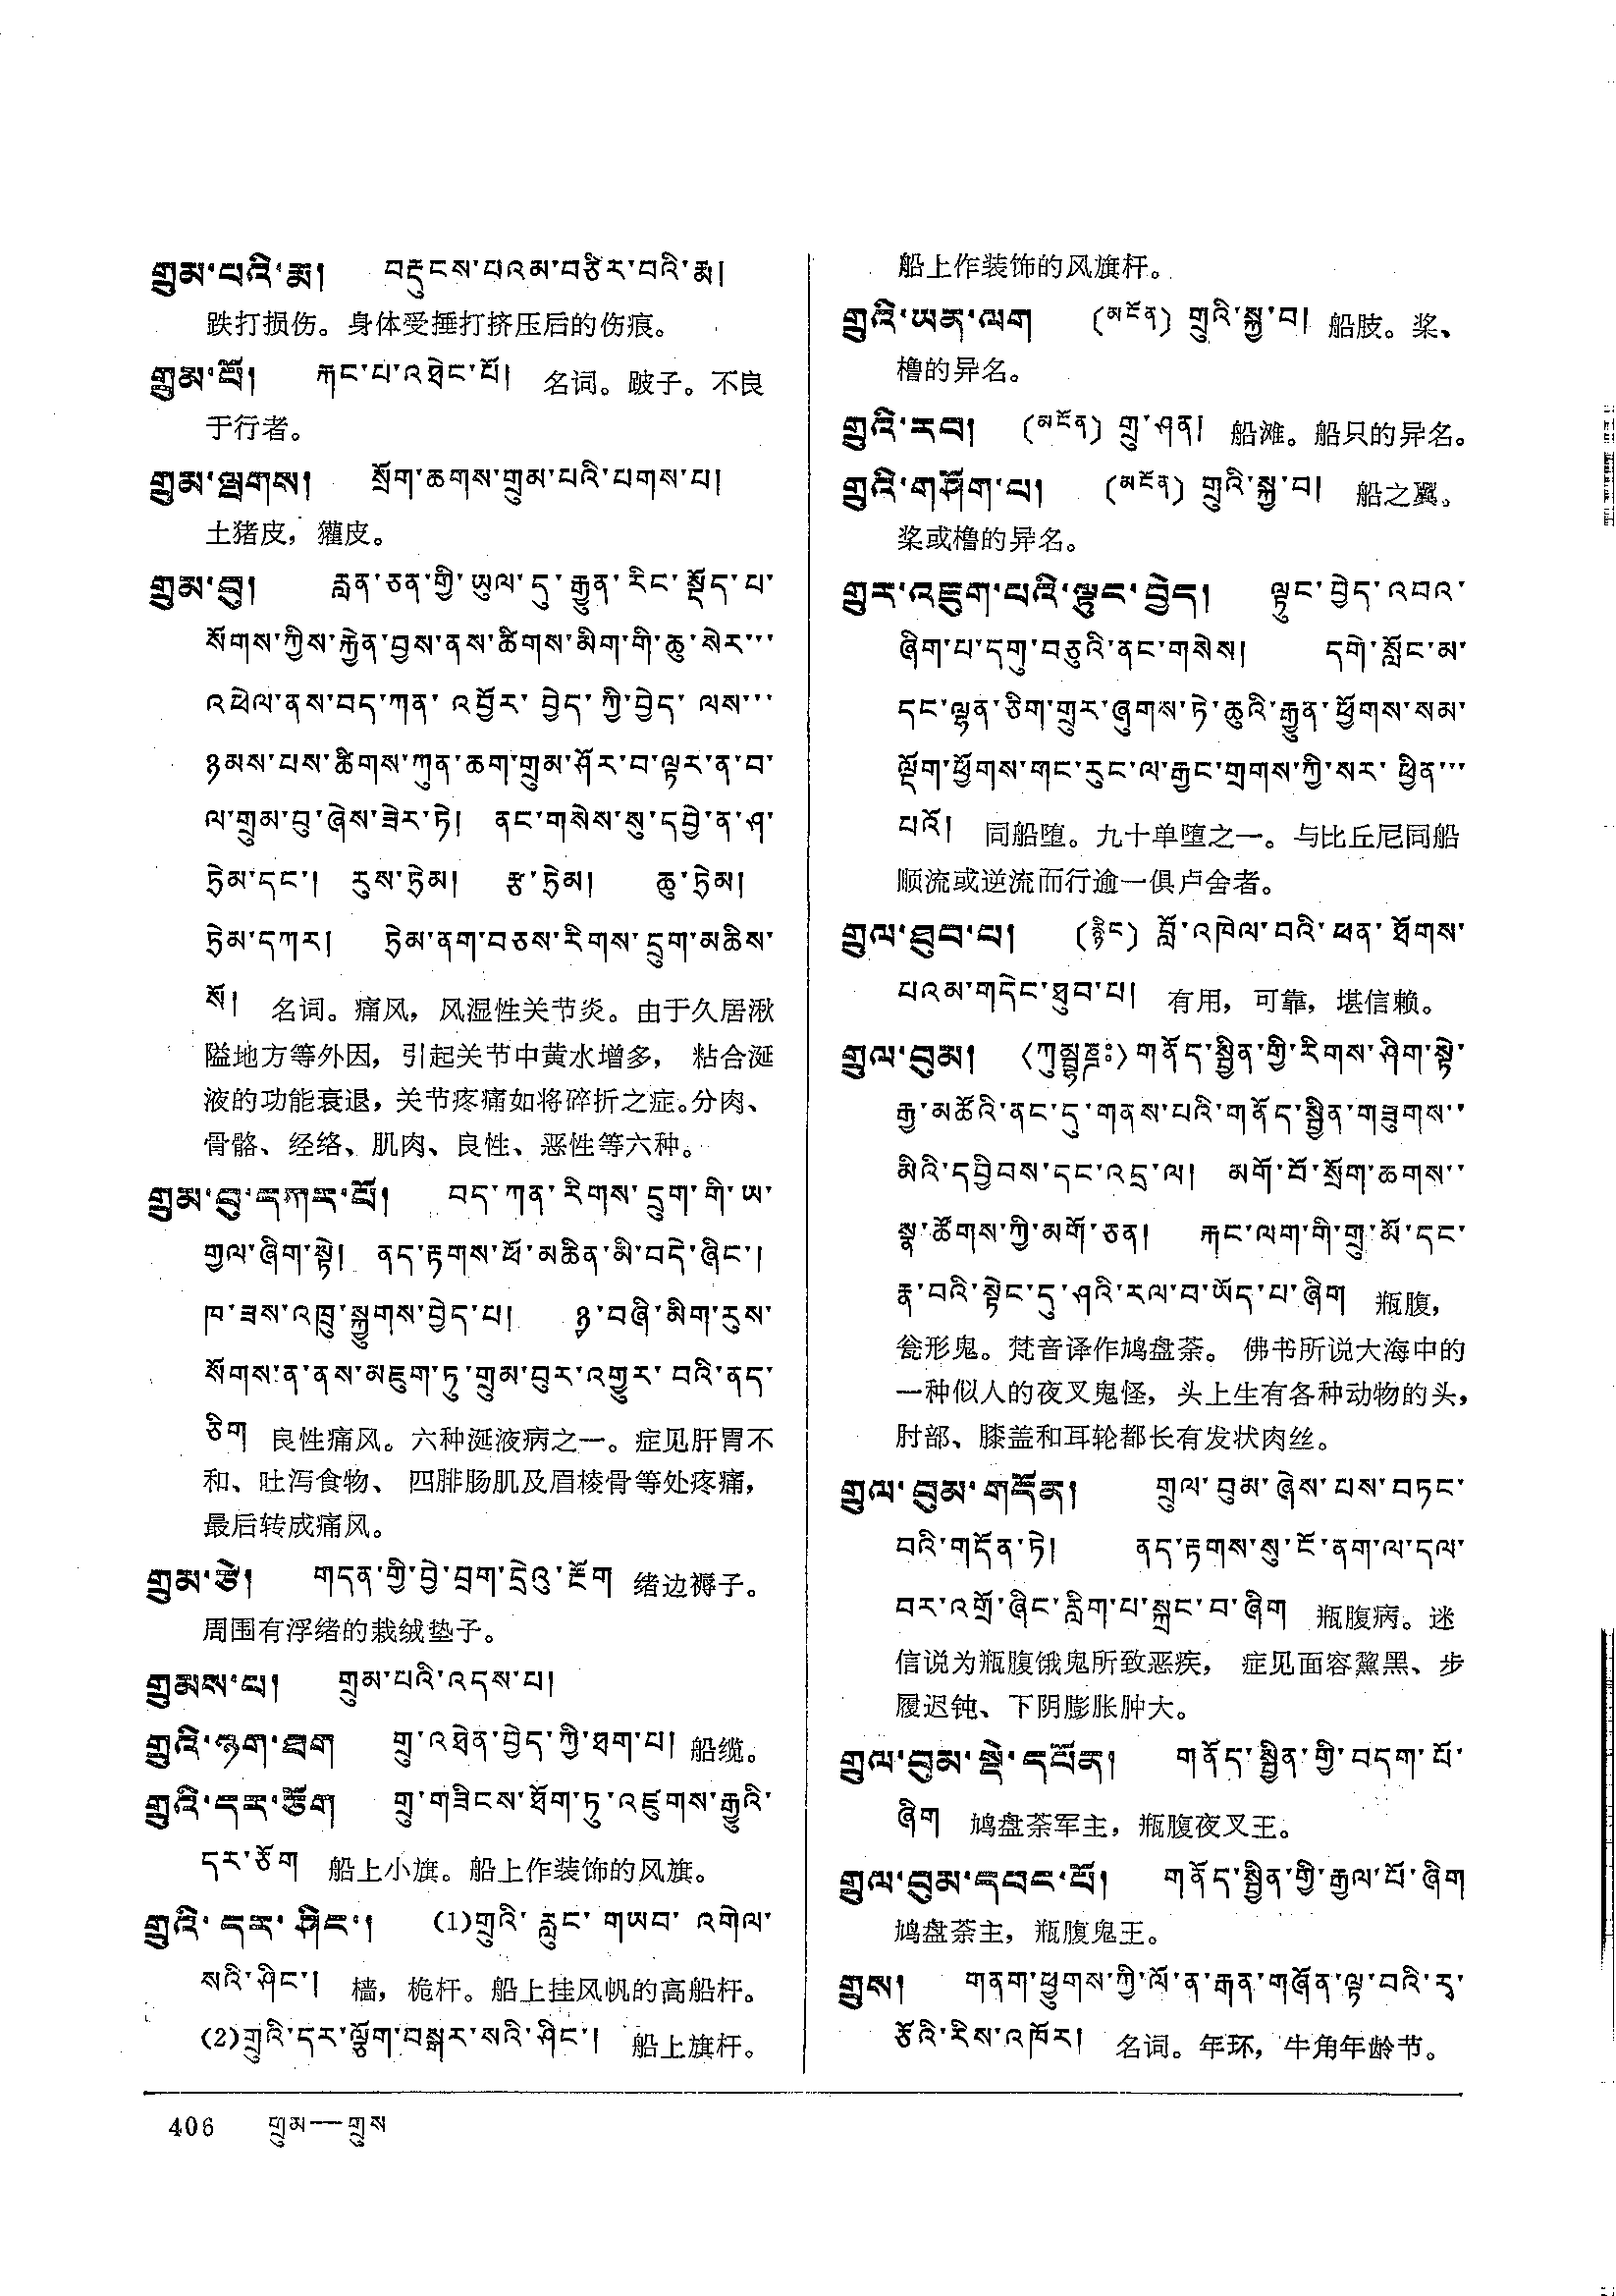 གྲུམ་པའི་རྨ། བརྡུངས་པའམ་བཙིར་བའི་རྨ།
跌打损伤。身体受捶打挤压后的伤痕。
གྲུམ་པོ། རྐང་པ་འཐེང་པོ། 名词。跛子。不良
于行者。
གྲུམ་ལྤགས། སྲོག་ཆགས་གྲུམ་པའི་པགས་པ།
土猪皮，獾皮。
གྲུམ་བུ། རླན་ཅན་གྱི་ཡུལ་དུ་རྒྱུན་རིང་སྡོད་པ་
སོགས་ཀྱིས་རྐྱེན་བྱས་ནས་ཚིགས་མིག་གི་ཆུ་སེར་་་
འཕེལ་ནས་བད་ཀན་འབྱོར་བྱེད་ཀྱི་བྱེད་ལས་་་
ཉམས་པས་ཚིགས་ཀུན་ཆག་གྲུམ་ཤོར་བ་ལྟར་ན་བ་
ལ་གྲུམ་བུ་ཞེས་ཟེར་ཏེ། ནང་གསེས་སུ་དབྱེ་ན་ཤ་
ཏྲེམ་དང་། རུས་ཏྲེམ། རྩ་ཏྲེམ། ཆུ་ཏྲེམ།
ཏྲེམ་དཀར། ཏྲེམ་ནག་བཅས་རིགས་དྲུག་མཆིས་
སོ། 名词。痛风，风湿性关节炎。由于久居湫
隘地方等外因，引起关节中黄水增多， 粘合涎
液的功能衰退，关节疼痛如将碎折之症。分肉、
骨骼、经络、肌肉、良性、恶性等六种。
གྲུམ་བུ་དཀར་པོ། བད་ཀན་རིགས་དྲུག་གི་ཡ་
གྱལ་ཞིག་སྟེ། ནད་རྟགས་ཕོ་མཆིན་མི་བདེ་ཞིང་།
ཁ་ཟས་འཁྲུ་སྐྱུགས་བྱེད་པ། ཉྭ་བཞི་མིག་རུས་
སོགས་ན་ནས་མཇུག་ཏུ་གྲུམ་བུར་འགྱུར་བའི་ནད་
ཅིག 良性痛风。六种涎液病之一。症见肝胃不
和、吐泻食物、 四腓肠肌及眉棱骨等处疼痛，
最后转成痛风。
གྲུམ་ཙེ། གདན་གྱི་བྱེ་བྲག་དྲེའུ་རྫོག 绪边褥子。
周围有浮绪的栽绒垫子。
གྲུམས་པ། གྲུམ་པའི་འདས་པ།
གྲུའི་ཉག་ཐག གྲུ་འཐེན་བྱེད་ཀྱི་ཐག་པ། 船缆。
གྲུའི་དར་ཙོག གྲུ་གཟིངས་ཐོག་ཏུ་འཛུགས་རྒྱུའི་
དར་ཙོག 船上小旗。船上作装饰的风旗。
གྲུའི་དར་ཤིང་། (1)གྲུའི་རླུང་གཡབ་འགེལ་
སའི་ཤིང་། 樯，桅杆。船上挂风帆的高船杆。
(2)གྲུའི་དར་ལྕོག་བསྒར་སའི་ཤིང་། 船上旗杆。
船上作装饰的风旗杆。
གྲུའི་ཡན་ལག (མངོན) གྲུའི་སྐྱ་བ། 船肢。桨、
橹的异名。
གྲུའི་རབ། (མངོན) གྲུ་ཤན། 船滩。船只的异名。
གྲུའི་གཤོག་པ། (མངོན) གྲུའི་སྐྱ་བ། 船之翼。
桨或橹的异名。
གྲུར་འཇུག་པའི་ལྟུང་བྱེད། ལྟུང་བྱེད་འབའ་
ཞིག་པ་དགུ་བཅུའི་ནང་གསེས། དགེ་སློང་མ་
དང་ལྷན་ཅིག་གྲུར་ཞུགས་ཏེ་ཆུའི་རྒྱུན་ཕྱོགས་སམ་
ལྡོག་ཕྱོགས་གང་རུང་ལ་རྒྱང་གྲགས་ཀྱི་སར་ཕྱིན་་་
པའོ། 同船堕。九十单堕之一。与比丘尼同船
顺流或逆流而行逾一俱卢舍者。
གྲུལ་ཐུབ་པ། (རྙིང) བློ་འཁེལ་བའི་ཕན་ཐོགས་
པའམ་གདེང་ཐུབ་པ། 有用，可靠，堪信赖。
གྲུལ་བུམ། (ཀུམྦྷཎྜཿ)གནོད་སྦྱིན་གྱི་རིགས་ཤིག་སྟེ་
རྒྱ་མཚོའི་ནང་དུ་གནས་པའི་གནོད་སྦྱིན་གཟུགས་་
མིའི་དབྱིབས་དང་འདྲ་ལ། མགོ་བོ་སྲོག་ཆགས་་
སྣ་ཚོགས་ཀྱི་མགོ་ཅན། རྐང་ལག་གི་གྲུ་མོ་དང་
རྣ་བའི་སྟེང་དུ་ཤའི་རལ་བ་ཡོད་པ་ཞིག 瓶腹，
瓮形鬼。梵音译作鸠盘荼。 佛书所说大海中的
一种似人的夜叉鬼怪，头上生有各种动物的头，
肘部、膝盖和耳轮都长有发状肉丝。
གྲུལ་བུམ་གདོན། གྲུལ་བུམ་ཞེས་པས་བཏང་
བའི་གདོན་ཏེ། ནད་རྟགས་སུ་ངོ་ནག་ལ་དལ་
བར་འགྲོ་ཞིང་རླིག་པ་སྐྲང་བ་ཞིག 瓶腹病。迷
信说为瓶腹饿鬼所致恶疾， 症见面容黧黑、步
履迟钝、下阴膨胀肿大。
གྲུལ་བུམ་སྡེ་དཔོན། གནོད་སྦྱིན་གྱི་བདག་པོ་
ཞིག 鸠盘荼军主，瓶腹夜叉王。
གྲུལ་བུམ་དབང་པོ། གནོད་སྦྱིན་གྱི་རྒྱལ་པོ་ཞིག
鸠盘荼主，瓶腹鬼王。
གྲུས། གནག་ཕྱུགས་ཀྱི་ལོ་ན་རྒན་གཞོན་ལྟ་བའི་རྭ་
ཅོའི་རིས་འཁོར། 名词。年环，牛角年龄节。
406 གྲུམ——གྲུས